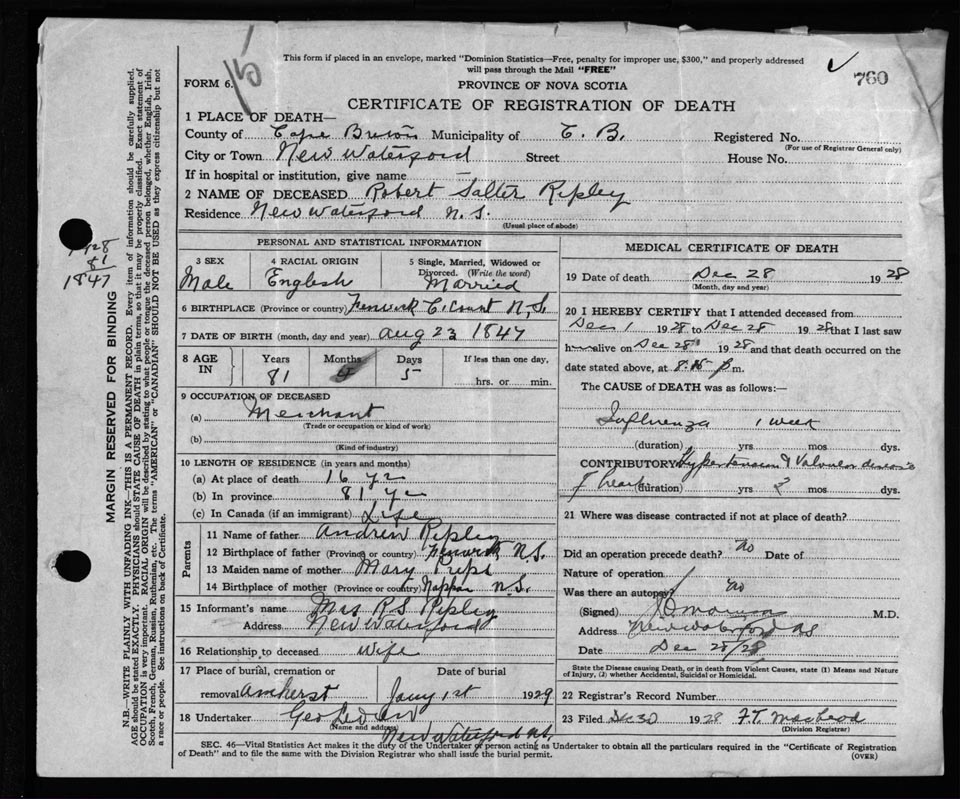 This form if placed in an envelope, marked "Dominion Statistics—Free, penalty for improper use, $300," and properly addressed
will pass through the Mail "FREE"
760
FORM 6.
PROVINCE OF NOVA SCOTIA
CERTIFICATE OF REGISTRATION OF DEATH
1 PLACE OF DEATH—
County of Cape Breton Municipality of C. B. Registered No.
(For use of Registrar General only)
City or Town New Waterford Street House No.
If in hospital or institution, give name —
2 NAME OF DECEASED Robert Salter Ripley
Residence New Waterford N. S.
(Usual place of abode)
1928
81
1847
MARGIN RESERVED FOR BINDING
N.B.—WRITE PLAINLY WITH UNFADING INK—THIS IS A PERMANENT RECORD. Every item of information should be carefully supplied.
AGE should be stated EXACTLY. PHYSICIANS should STATE CAUSE OF DEATH in plain terms, so that it may be properly classified. Exact statement of
OCCUPATION is very important. RACIAL ORIGIN will be described by stating to what people or tongue the deceased person belonged, whether English, Irish,
Scotch, French, German, Russian, Ruthenian, etc. The terms "AMERICAN" or "CANADIAN" SHOULD NOT BE USED as they express citizenship but not
a race or people. See instructions on back of Certificate.
PERSONAL AND STATISTICAL INFORMATION
3 SEX
Male
4 RACIAL ORIGIN
English
5 Single, Married, Widowed or
Divorced. (Write the word)
Married
6 BIRTHPLACE (Province or country) Fenwick C. Count N.S.
7 DATE OF BIRTH (month, day and year) Aug 23 1847
8 AGE
IN
Years
81
Months
4
Days
5
If less than one day,
hrs. or min.
9 OCCUPATION OF DECEASED
(a) Merchant
(Trade or occupation or kind of work)
(b)
(Kind of industry)
10 LENGTH OF RESIDENCE (in years and months)
(a) At place of death 16 yr
(b) In province 81 yr
(c) In Canada (if an immigrant) Life
Parents
11 Name of father Andrew Ripley
12 Birthplace of father (Province or country) Fenwick N.S.
13 Maiden name of mother Mary Pips
14 Birthplace of mother (Province or country) Nappan N.S.
15 Informant's name Mrs R S Ripley
Address New Waterford
16 Relationship to deceased Wife
17 Place of burial, cremation or
removal Amherst
Date of burial
Jany 1st 1929
18 Undertaker Geo
(Name and address)
New Waterford N.S.
MEDICAL CERTIFICATE OF DEATH
19 Date of death Dec 28 1928
(Month, day and year)
20 I HEREBY CERTIFY that I attended deceased from
Dec 1 1928 to Dec 28 1928 that I last saw
him alive on Dec 28 1928 and that death occurred on the
date stated above, at 8.15 p m.
The CAUSE of DEATH was as follows:—
Influenza 1 week
(duration) yrs mos dys.
CONTRIBUTORY Hypertension & Valvular disease
of heart (duration) yrs 2 mos dys.
21 Where was disease contracted if not at place of death?
Did an operation precede death? No Date of
Nature of operation
Was there an autopsy? No
(Signed) M.D.
Address New Waterford NS
Date Dec 28/28
State the Disease causing Death, or in death from Violent Causes, state (1) Means and Nature
of Injury, (2) whether Accidental, Suicidal or Homicidal.
22 Registrar's Record Number
23 Filed Dec 30 1928 F.T. MacLeod
(Division Registrar)
SEC. 46—Vital Statistics Act makes it the duty of the Undertaker or person acting as Undertaker to obtain all the particulars required in the "Certificate of Registration
of Death" and to file the same with the Division Registrar who shall issue the burial permit.
(OVER)